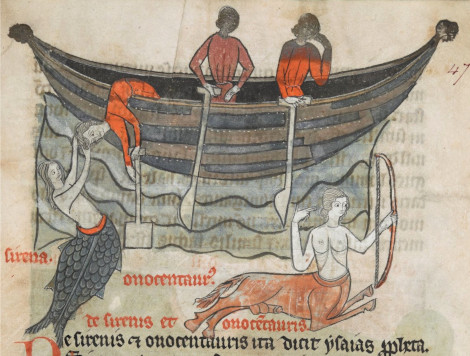 47
sirena.
onocentaur⁹
de sirenis et onocẽtauris
De sirenis ⁊ onocentauris ita dicit ysaias